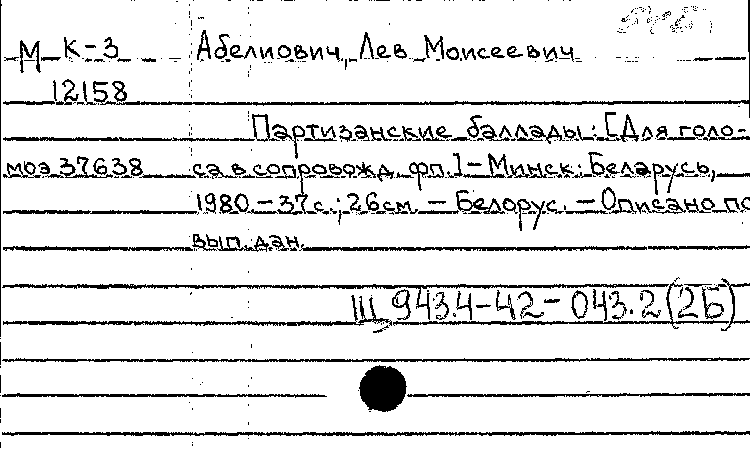 М К-3 Абелиович, Лев Моисеевич
12158
Партизанские баллады: [Для голо-
моэ 37638 са в сопровожд. фп.] - Минск: Беларусь,
1980. - 37с.; 26см. - Белорус. - Описано по
вып. дан.
Щ 943.4-42-043.2(2Б)